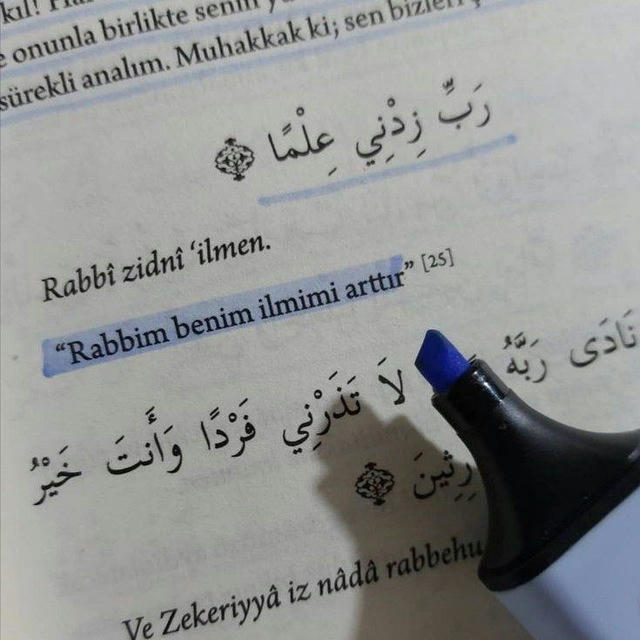 kıl!
onunla birlikte senin
sürekli analım. Muhakkak ki; sen bizleri
رَبِّ زِدْنِي عِلْمًا
Rabbî zidnî ‘ilmen.
“Rabbim benim ilmimi arttır” [25]
نَادَى رَبَّهُ لَا تَذَرْنِي فَرْدًا وَأَنتَ خَيْرُ
Ve Zekeriyyâ iz nâdâ rabbehu